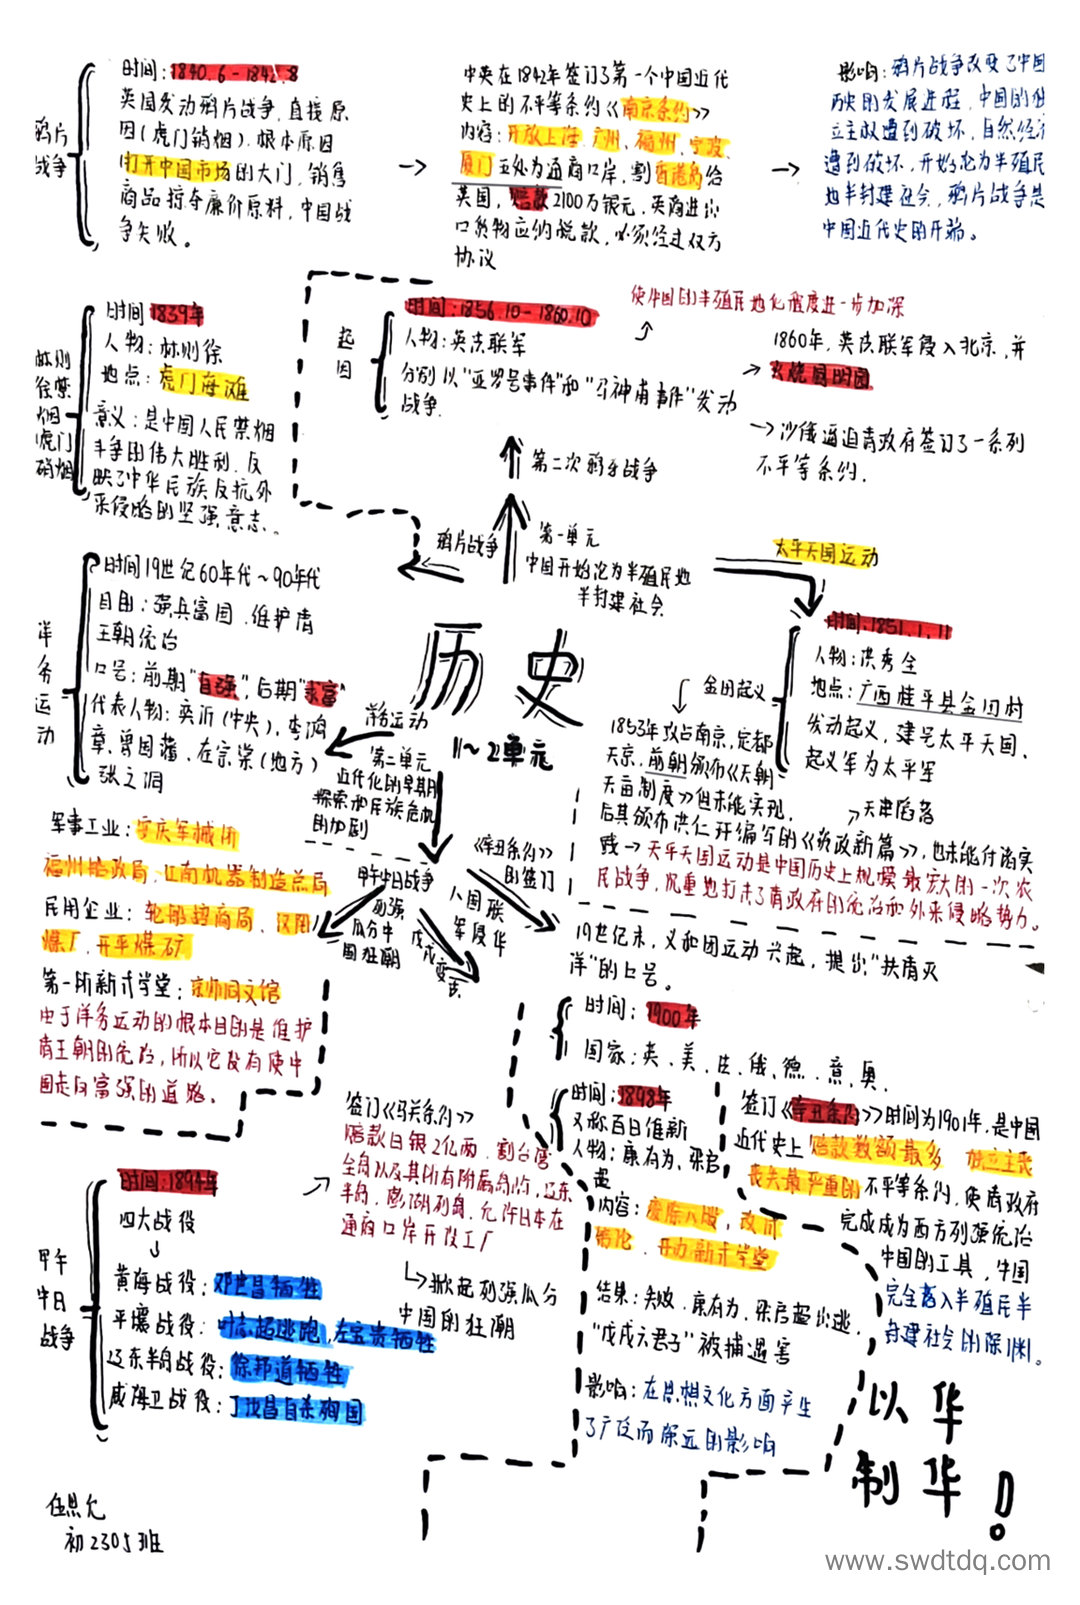 鸦片
战争
时间：1840.6-1842.8
英国发动鸦片战争，直接原
因(虎门销烟)，根本原因
打开中国市场的大门，销售
商品掠夺廉价原料，中国战
争失败。
中英在1842年签订了第一个中国近代
史上的不平等条约《南京条约》
内容：开放上海、广州、福州、宁波、
厦门五处为通商口岸，割香港岛给
英国，赔款2100万银元，英商进出
口货物应纳税款，必须经过双方
协议
影响：鸦片战争改变了中国
历史的发展进程，中国的独
立主权遭到破坏，自然经济
遭到破坏，开始沦为半殖民
地半封建社会，鸦片战争是
中国近代史的开端。
林则
徐禁
烟
(虎门
硝烟
时间 1839年
人物：林则徐
地点：虎门海滩
意义：是中国人民禁烟
斗争的伟大胜利，反
映了中华民族反抗外
来侵略的坚强意志。
起
因
时间：1856.10-1860.10
人物：英法联军
分别以"亚罗号事件"和"马神甫事件"发动
战争.
使中国的半殖民地化程度进一步加深
1860年，英法联军侵入北京，并
火烧圆明园
沙俄逼迫清政府签订了一系列
不平等条约.
第二次鸦片战争
鸦片战争
第一单元
中国开始沦为半殖民地
半封建社会
太平天国运动
洋
务
运
动
时间19世纪60年代~90年代
目的：强兵富国，维护清
王朝统治
口号：前期"自强"，后期"求富"
代表人物：奕䜣(中央)，李鸿
章、曾国藩、左宗棠(地方)
张之洞
历史
1~2单元
洋务运动
第二单元
近代化的早期
探索和民族危机
的加剧
金田起义
时间：1851.1.11
人物：洪秀全
地点：广西桂平县金田村
发动起义，建号太平天国，
起义军为太平军
1853年攻占南京，定都
天京，前期颁布《天朝
天亩制度》但未能实现，
天津陷落
后其颁布洪仁玕编写的《资政新篇》，也未能付诸实
践→天平天国运动是中国历史上规模最宏大的一次农
民战争，沉重地打击了清政府的统治和外来侵略势力。
军事工业：安庆军械所
福州船政局，江南机器制造总局
民用企业：轮船招商局、汉阳
煤厂，开平煤矿
第一所新式学堂：京师同文馆
由于洋务运动的根本目的是维护
清王朝的统治，所以它没有使中
国走向富强的道路。
甲午中日战争
列强
瓜分中
国狂潮
戊戌变法
八国联
军侵华
《辛丑条约》
的签订
19世纪末，义和团运动兴起，提出"扶清灭
洋"的口号。
时间：1900年
国家：英、美、法、俄、德、意、奥、
时间：1898年
又称百日维新
人物：康有为、梁启
超
内容：废除八股，改革
开办新式学堂
结果：失败，康有为，梁启超出逃，
"戊戌六君子"被捕遇害
影响：在思想文化方面产生
了广泛而深远的影响
签订《辛丑条约》时间为1901年，是中国
近代史上赔款数额最多 独立主
丧失最严重的不平等条约，使清政府
完成成为西方列强统治
中国的工具，中国
完全落入半殖民半
封建社会的深渊。
签订《马关条约》
赔款白银2亿两，割台湾
全岛以及其所有附属岛屿，辽东
半岛，澎湖列岛，允许日本在
通商口岸开设工厂
掀起列强瓜分
中国的狂潮
甲午
中日
战争
时间：1894年
四大战役
黄海战役：邓世昌牺牲
平壤战役：叶志超逃跑，左宝贵牺牲
辽东半岛战役：徐邦道牺牲
威海卫战役：丁汝昌自杀殉国
以华
制华！
任思允
初2305班
www.swdtdq.com